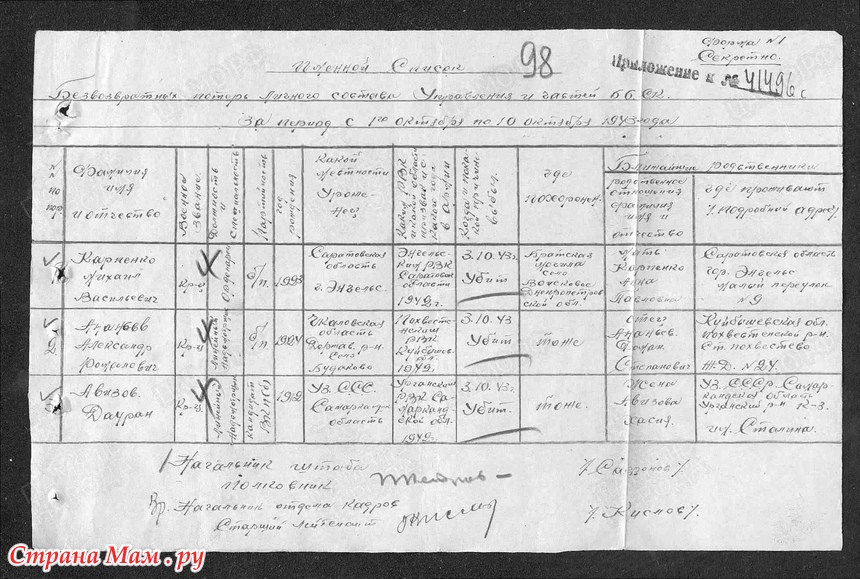 Форма №1
Секретно.
98
Приложение к № 41496с
Именной Список
Безвозвратных потерь личного состава Управления и частей 6 Б.СК.
За период с 1го октября по 10 октября 1943 года
NN по пор.
Фамилия имя и отчество
Военное звание
Должность и специальность
Партийность
год рождения
Какой местности уроженец
Каким РВК
Когда и по какой причине выбыл.
где похоронен.
Ближайшие родственники
родственное отношение фамилия имя и отчество
где проживают /подробный адрес/
1
Карпенко Михаил Васильевич
Кр-ц
Ординарец
б/п
Саратовская область г. Энгельс.
Энгельский РВК Саратовской области 1942г.
3.10.43г. Убит
Братская могила село Войсковое Днепропетровской обл.
Мать Карпенко Анна Павловна
Саратовская область гор. Энгельс малый переулок №9
2
Ананьев Александр Романович
Кр-ц
Линейный Надсмотрщик
б/п
1924
Чкаловская область Держав. р-н село Будаково
Похвистневский РВК Куйбышев. обл. 1942г.
3.10.43 Убит
тоже
отец Ананьев Роман Степанович
Куйбышевская обл. Похвистневский р-н Ст. похвистнево Ж.Д. №24.
Авизов. Дауран
Кр-ц
Линейный Надсмотрщик
кандидат ВКП(б)
1912
Уз. ССС. Самаркандская область
Ургутский РВК Самаркандской обл. 1942г.
3.10.43г Убит.
тоже.
Жена Авизова Хасия.
Уз. СССР. Самаркандская область Ургутский р-н К-З. им. Сталина.
Начальник штаба
полковник
/Сафронов/.
Вр. Начальник отдела кадров
Старший лейтенант
/Кислов/.
Страна Мам.ру